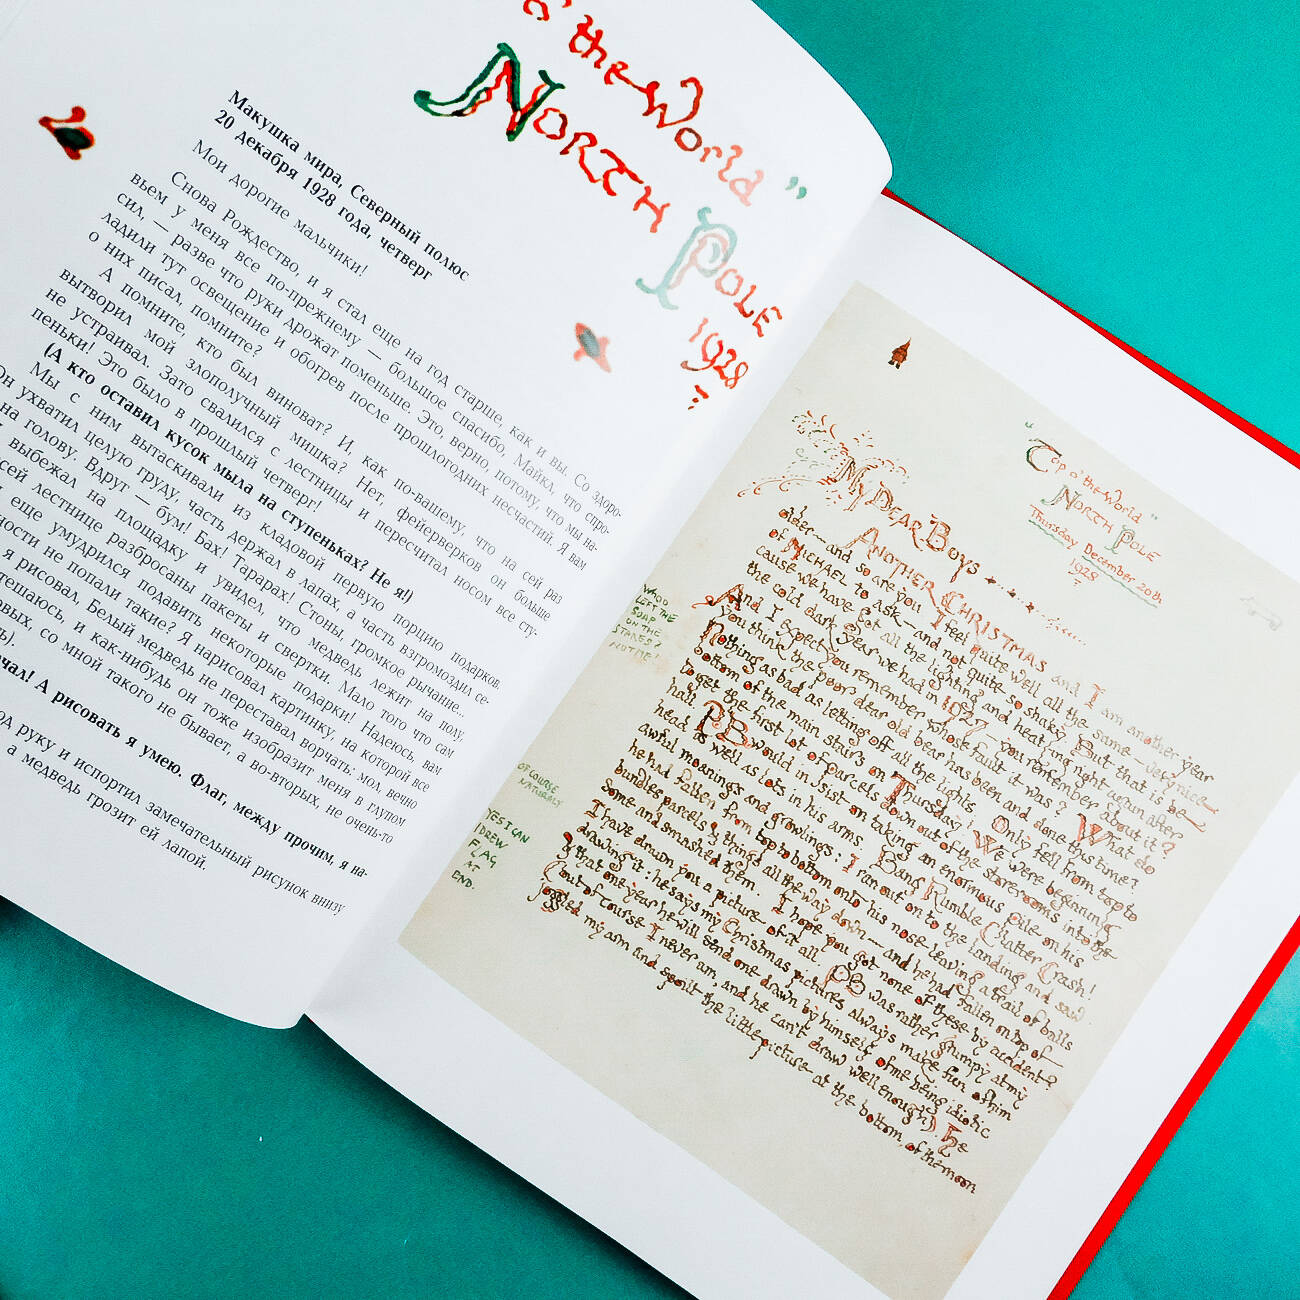 the-World"
NORTH POLE
1928
Макушка мира, Северный полюс
20 декабря 1928 года, четверг
Мои дорогие мальчики!
Снова Рождество, и я стал еще на год старше, как и вы. Со здоро-
вьем у меня все по-прежнему — большое спасибо, Майкл, что спро-
сил, — разве что руки дрожат поменьше. Это, верно, потому, что мы на-
ладили тут освещение и обогрев после прошлогодних несчастий. Я вам
о них писал, помните?
А помните, кто был виноват? И, как по-вашему, что на сей раз
вытворил мой злополучный мишка? Нет, фейерверков он больше
не устраивал. Зато свалился с лестницы и пересчитал носом все сту-
пеньки! Это было в прошлый четверг!
(А кто оставил кусок мыла на ступеньках? Не я!)
Мы с ним вытаскивали из кладовой первую порцию подарков.
Он ухватил целую груду, часть держал в лапах, а часть взгромоздил се-
на голову. Вдруг — бум! Бах! Тарарах! Стоны, громкое рычание...
выбежал на площадку и увидел, что медведь лежит на полу,
сей лестнице разбросаны пакеты и свертки. Мало того что сам
еще умудрился подавить некоторые подарки! Надеюсь, вам
ности не попали такие? Я нарисовал картинку, на которой все
я рисовал, Белый медведь не переставал ворчать: мол, вечно
тешаюсь, и как-нибудь он тоже изобразит меня в глупом
вых, со мной такого не бывает, а во-вторых, не очень-то
чал! А рисовать я умею. Флаг, между прочим, я на-
од руку и испортил замечательный рисунок внизу
а медведь грозит ей лапой.
"Top o' the-World"
NORTH POLE
Thursday December 20th
1928
MY DEAR BOYS
ANOTHER CHRISTMAS and I am another year
older — and so are you. I feel quite well all the same — very nice
of MICHAEL to ask — and not quite so shaky. But that is be-
cause we have got all the lighting and heating right again after
the cold dark year we had in 1927 — you remember about it?
And I expect you remember whose fault it was? What do
you think the poor dear old bear has been and done this time?
Nothing as bad as letting off all the lights. Only fell from top to
bottom of the main stairs on Thursday! We were beginning
to get the first lot of parcels down out of the storerooms into the
hall. PB would insist on taking an enormous pile on his
head as well as lots in his arms. Bang Rumble Clatter Crash!
awful moanings and growlings: I ran out on to the landing and saw
he had fallen from top to bottom onto his nose leaving a trail of balls
bundles parcels & things all the way down — and he had fallen on top of
some and smashed them. I hope you got none of these by accident?
I have drawn you a picture of it all. PB was rather grumpy at my
drawing it: he says my Christmas pictures always make fun of him
& that one year he will send one drawn by himself of me being idiotic
(but of course I never am, and he can't draw well enough). He
joggled my arm and spoilt the little picture at the bottom, of the moon
WHO
LEFT THE
SOAP
ON THE
STAIRS?
NOT ME!
OF COURSE
NATURALY
YES I CAN
I DREW
FLAG
AT
END.